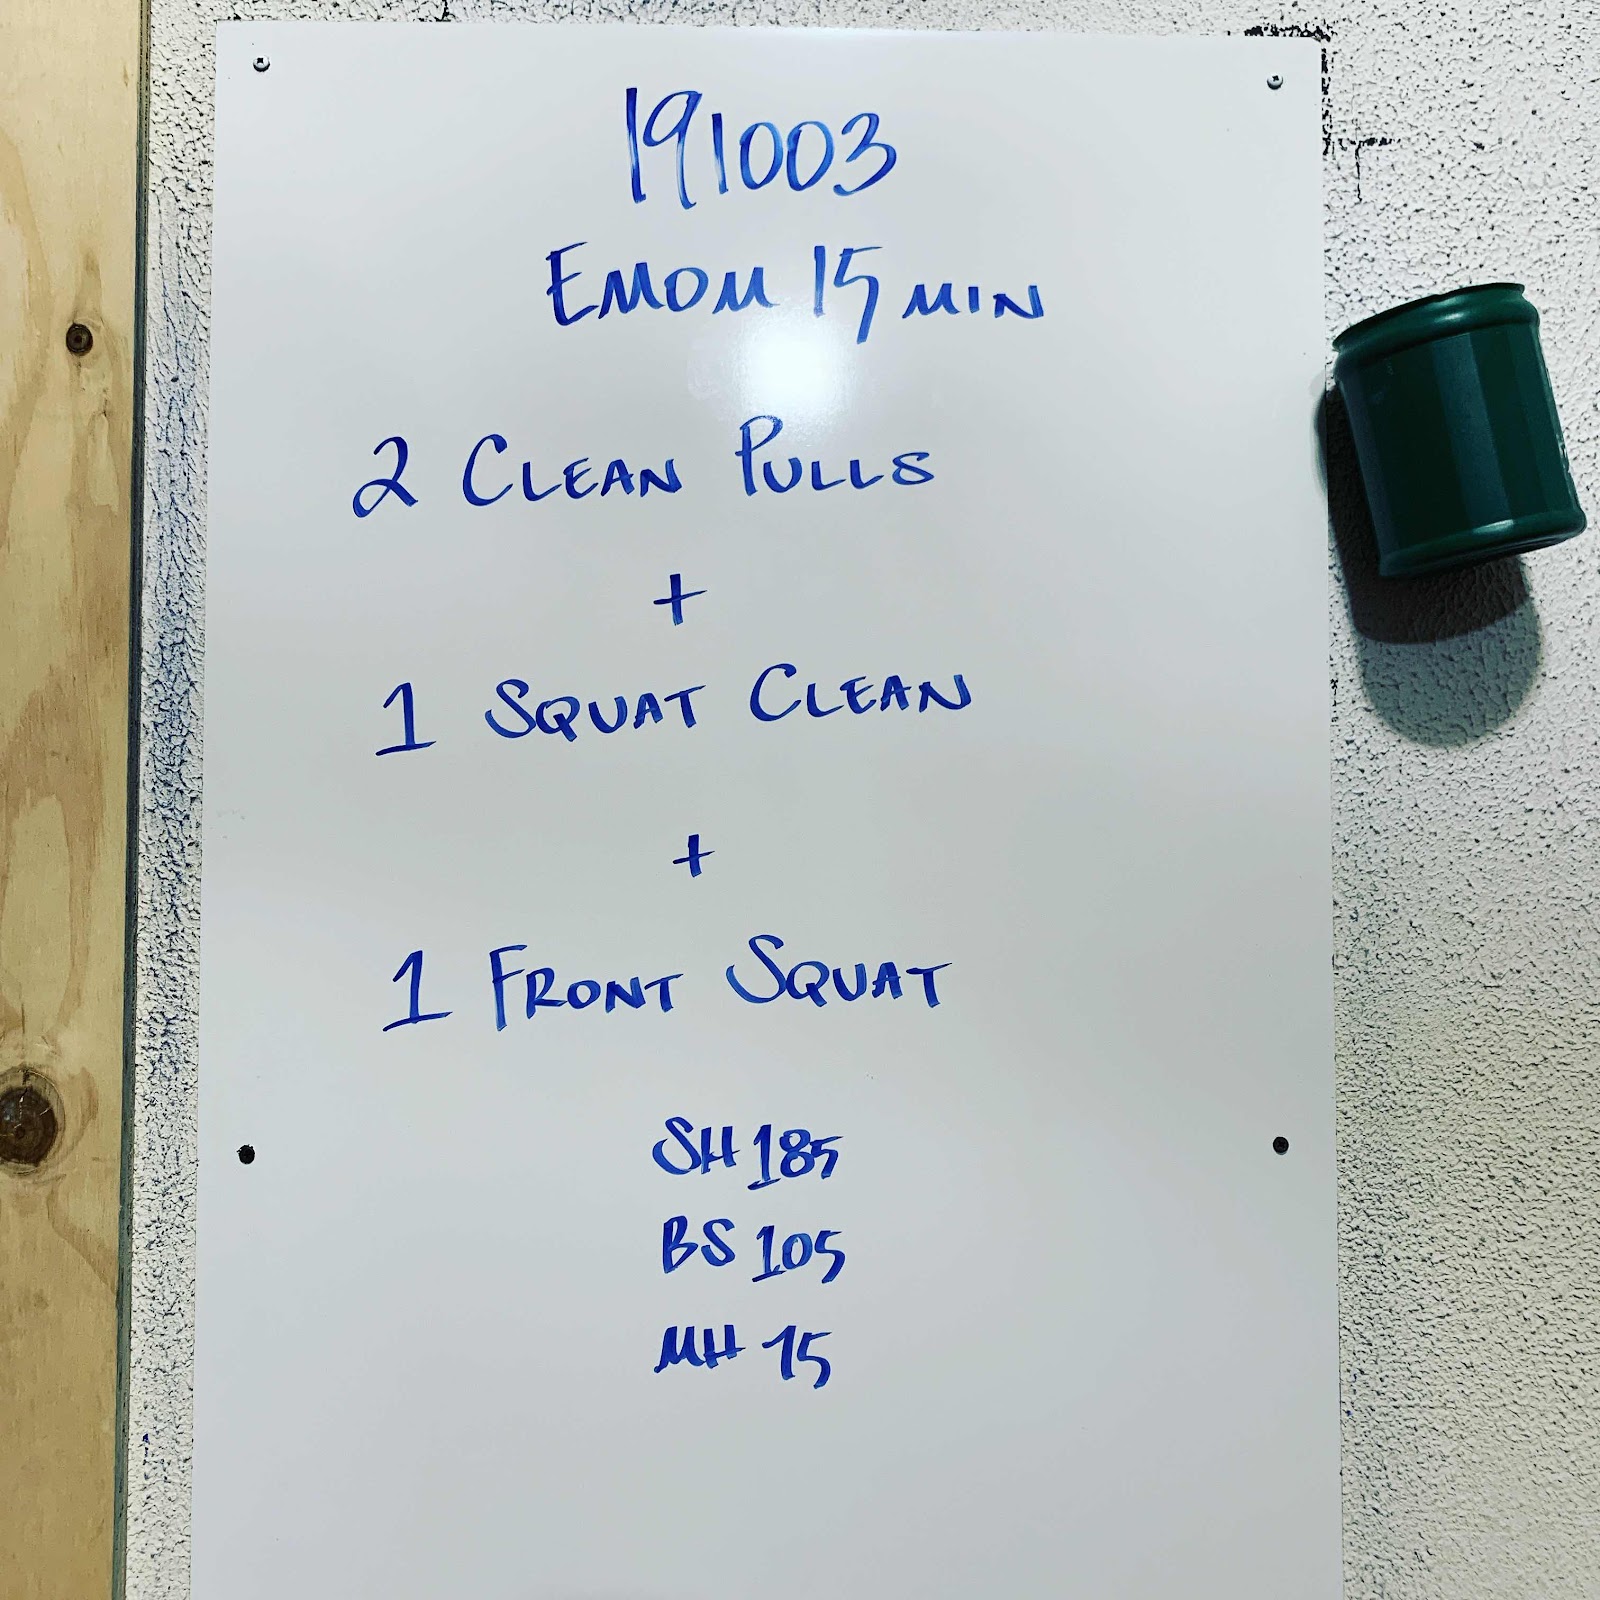 191003
EMOM 15 MIN
2 CLEAN PULLS
+
1 SQUAT CLEAN
+
1 FRONT SQUAT
SH 185
BS 105
MH 75